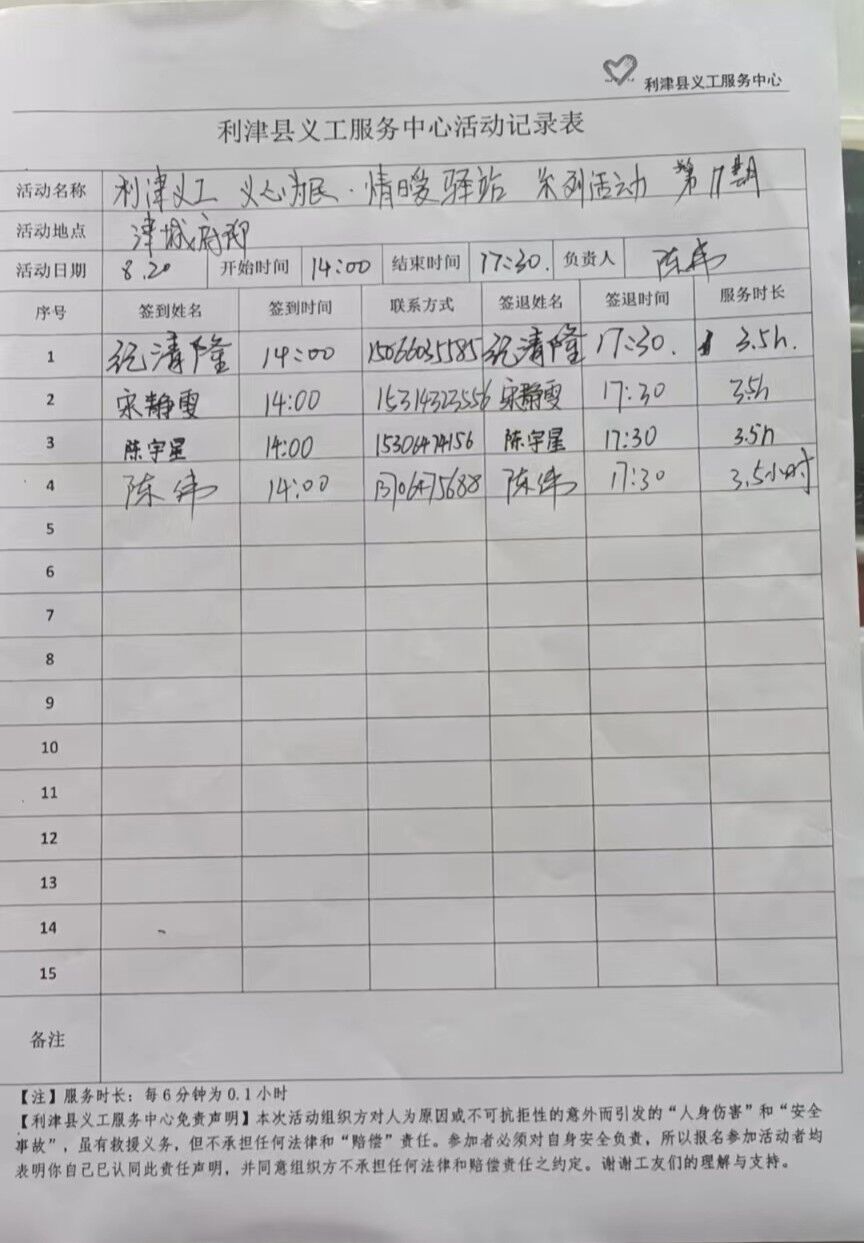 利津县义工服务中心
利津县义工服务中心活动记录表
活动名称 利津义工 义心为民·情暖驿站 系列活动 第17期
活动地点 津城府邸
活动日期 8.20 开始时间 14:00 结束时间 17:30. 负责人 陈伟
序号 签到姓名 签到时间 联系方式 签退姓名 签退时间 服务时长
1 纪清隆 14:00 15066035585 纪清隆 17:30. 3.5h.
2 宋静雯 14:00 15314323556 宋静雯 17:30 3.5h
3 陈宇星 14:00 15306474156 陈宇星 17:30 3.5h
4 陈伟 14:00 13706475688 陈伟 17:30 3.5小时
5
6
7
8
9
10
11
12
13
14
15
备注
【注】服务时长：每6分钟为0.1小时
【利津县义工服务中心免责声明】本次活动组织方对人为原因或不可抗拒性的意外而引发的“人身伤害”和“安全
事故”，虽有救援义务，但不承担任何法律和“赔偿”责任。参加者必须对自身安全负责，所以报名参加活动者均
表明你自己已认同此责任声明，并同意组织方不承担任何法律和赔偿责任之约定。谢谢工友们的理解与支持。